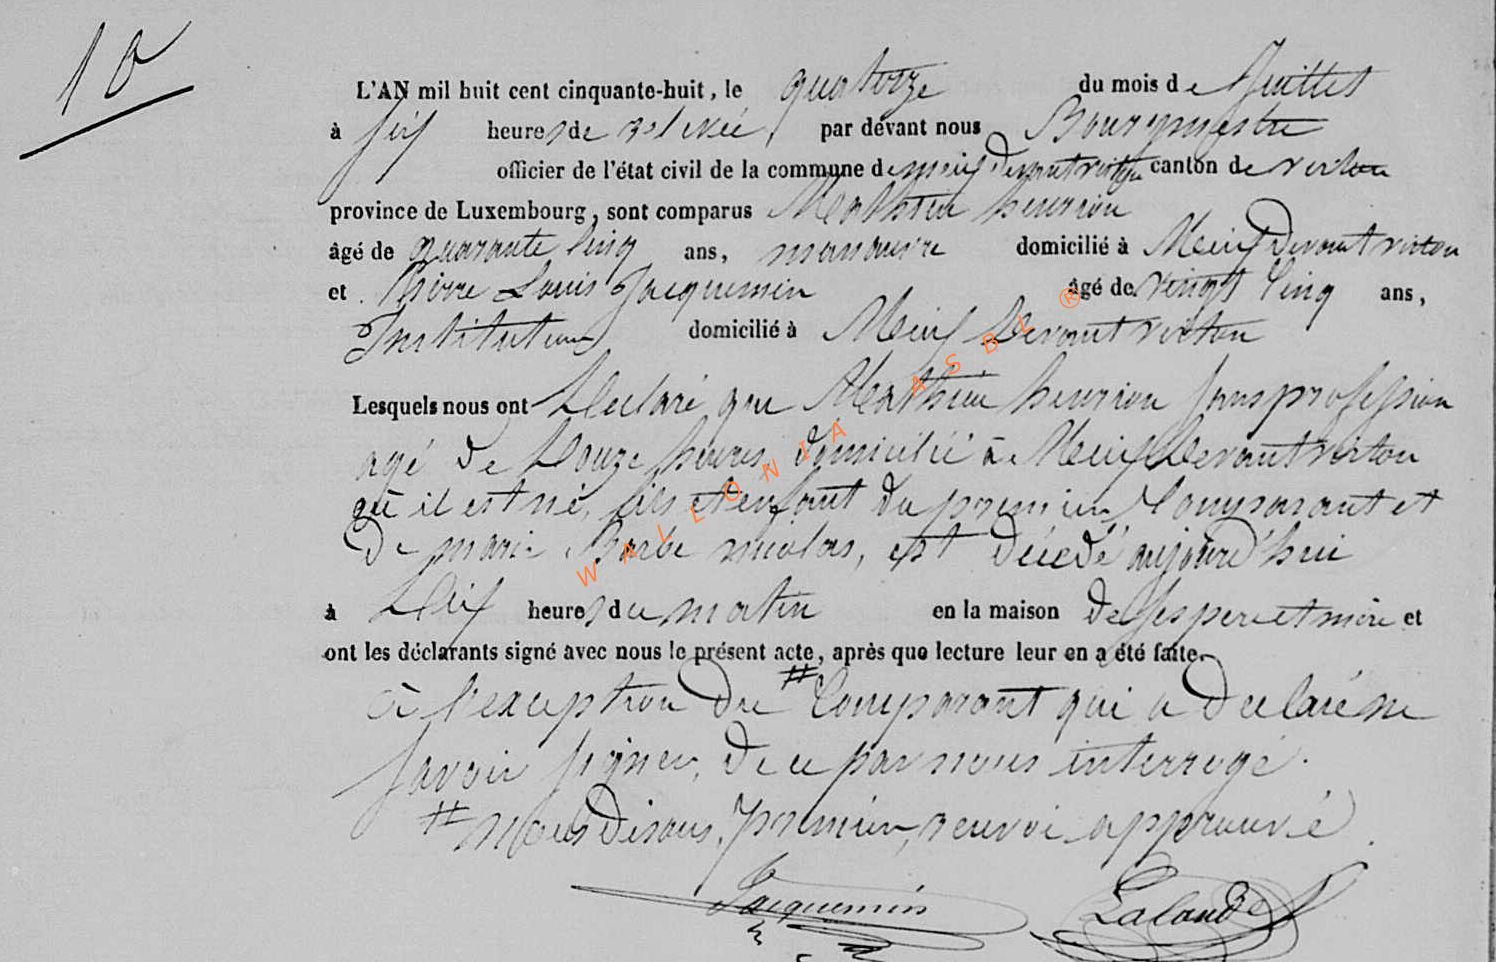 10
L'AN mil huit cent cinquante-huit, le quatorze du mois de Juillet
à six heures de relevée, par devant nous Bourgmestre
officier de l'état civil de la commune de meix devant virton canton de virton
province de Luxembourg, sont comparus Mathieu henrion
âgé de quarante cinq ans, manœuvre domicilié à Meix devant virton
et Pierre Louis Jacquemin âgé de vingt cinq ans,
Instituteur domicilié à Meix Devant virton
Lesquels nous ont déclaré que Mathieu henrion sans profession
agé de Douze heures, domicilié à Meix Devant virton
où il est né, fils et enfant du premier Comparant et
De marie Barbe nicolas, est décédé aujourd'hui
à dix heures du matin en la maison de ses pere et mère et
ont les déclarants signé avec nous le présent acte, après que lecture leur en a été faite.
à l'exception du # Comparant qui a declaré ne
savoir signer, de ce par nous interrogé.
# nous disons, premier, renvoi approuvé.
Jacquemin Lalande
WALLONIA ASBL ®